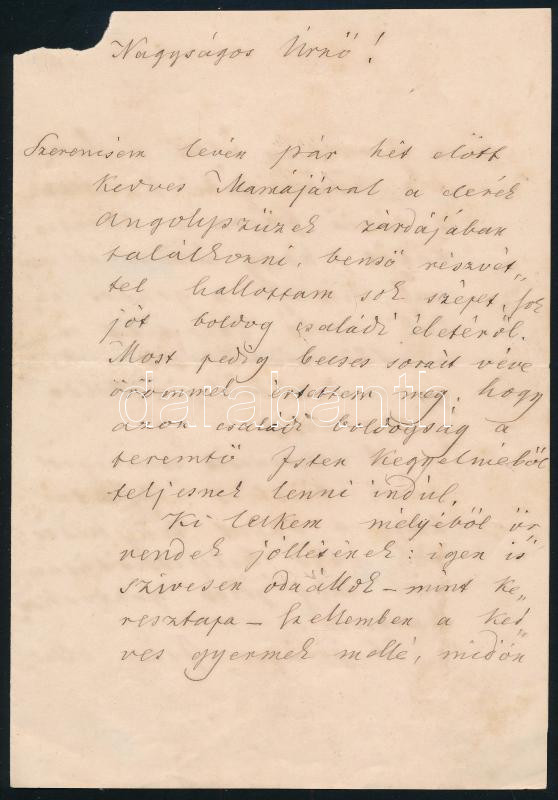 Nagyságos Úrnő!
Szerencsém levén pár hét előtt
kedves Mamájával a derék
angolszüzek zárdájában
találkozni, benső részvét„
tel hallottam sok szépet, sok
jót boldog családi életéről.
Most pedig becses sorait véve
örömmel értettem meg, hogy
azon családi boldogság a
teremtő Isten kegyelméből
teljesnek lenni indul.
Ki lelkem mélyéből ör„
vendek jóllétének: igen is
szívesen odaállok – mint ke„
resztapa – szellemben a ked„
ves gyermek mellé, midőn
darabanth